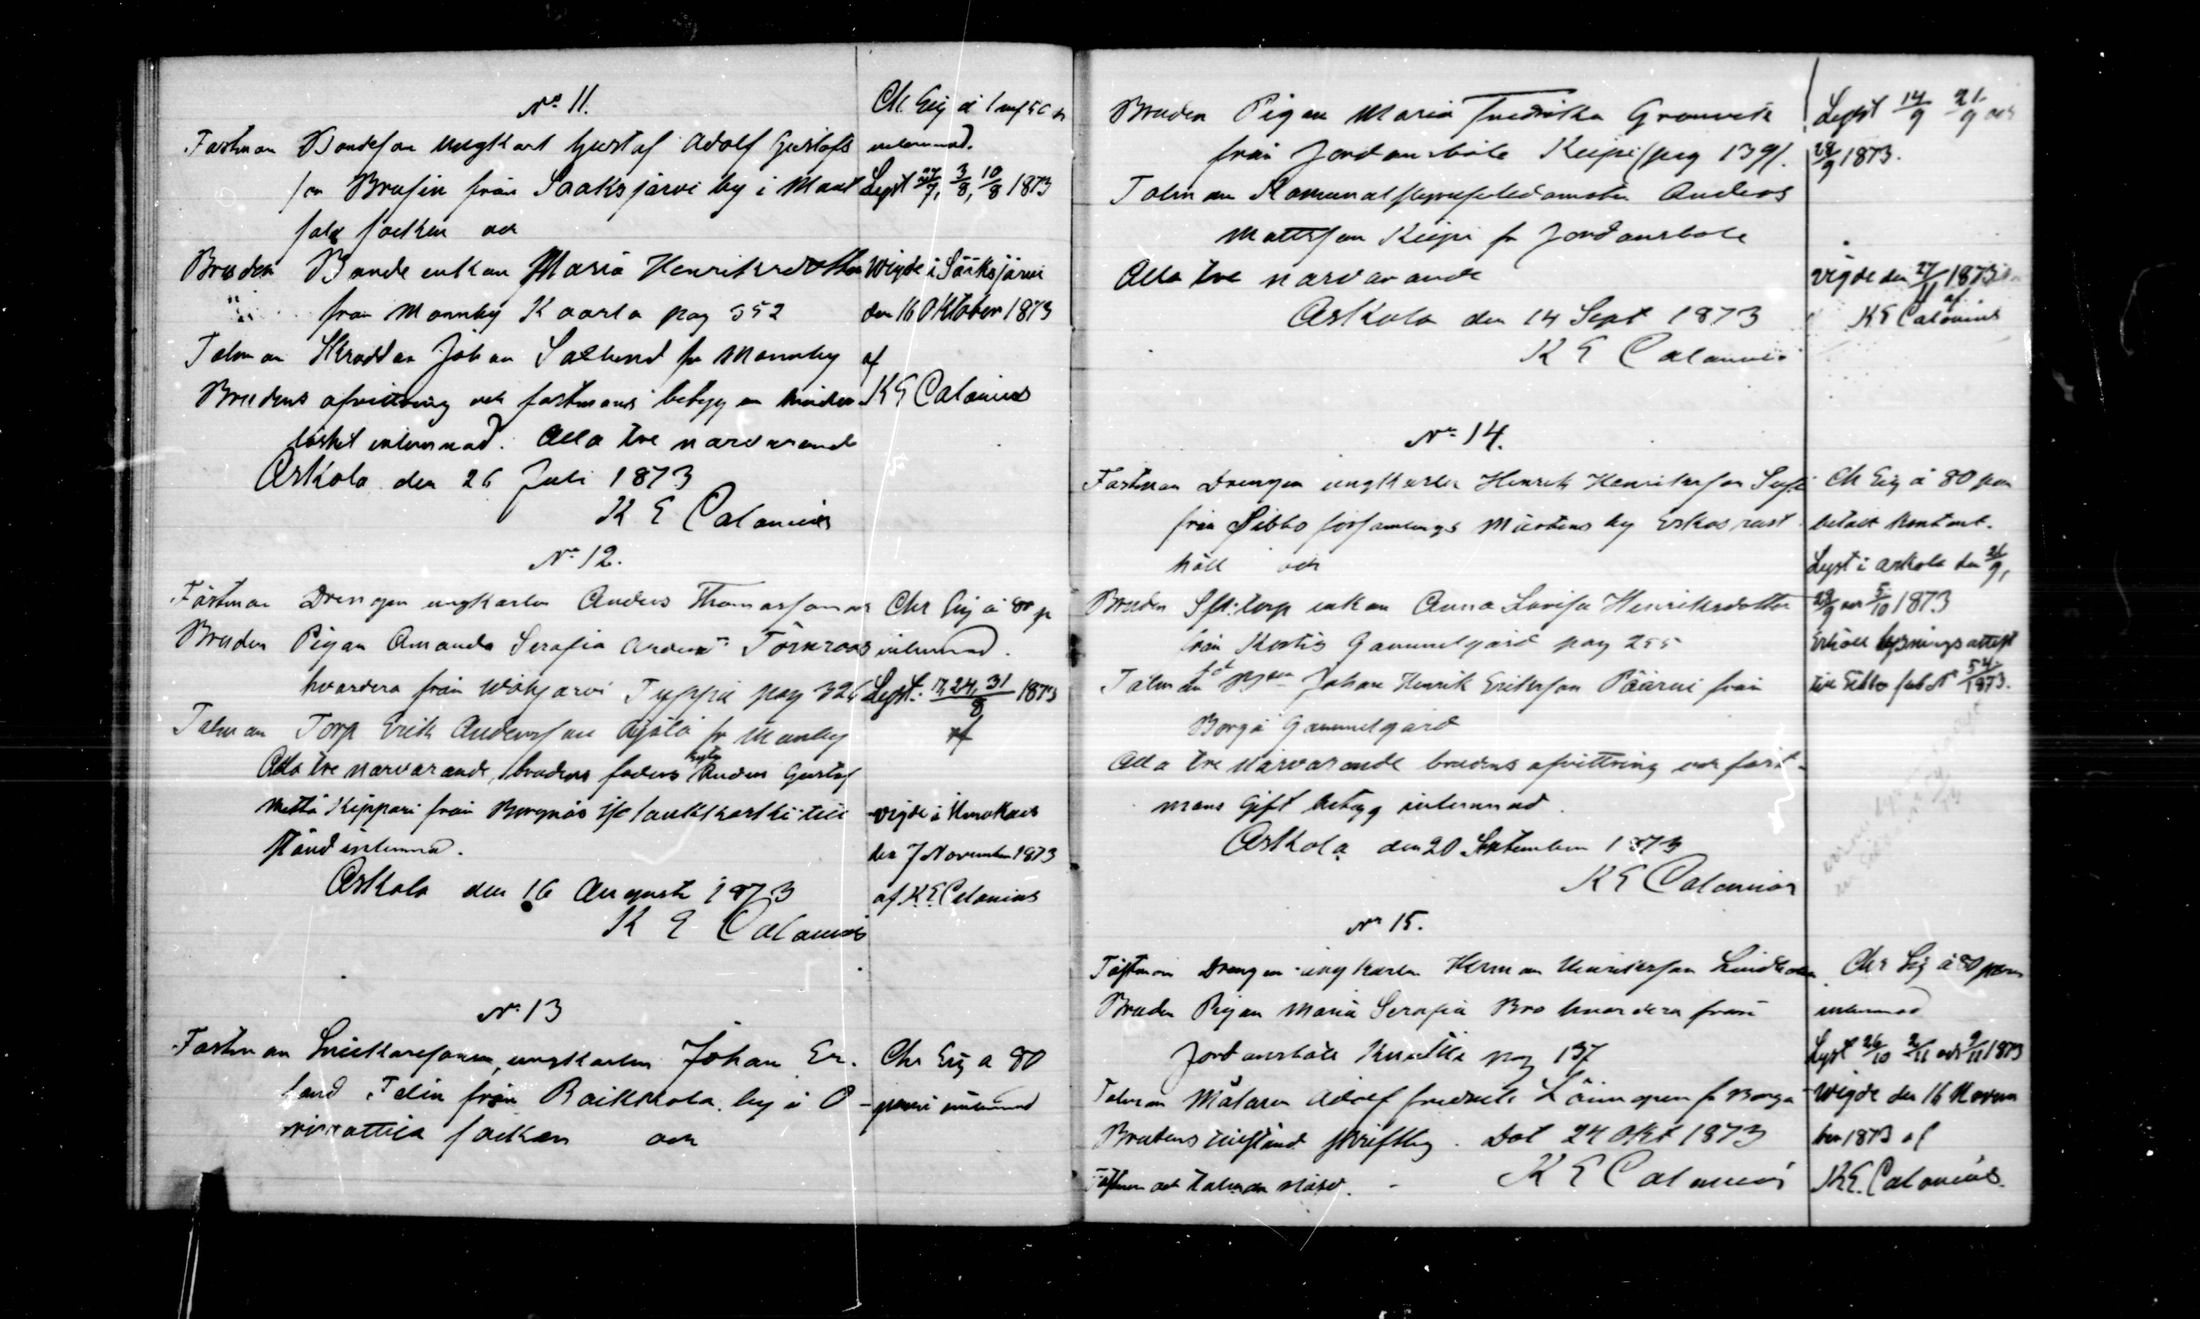 No 11.
Fästman Bondeson ungkarl Gustaf Adolf Gustafs
son Brusin från Sääksjärvi by i Mänt
sälä socken och
Bruden Bonde enkan Maria Henriksdotter
från Monnby Kaarla pag 352
Talman Skräddar Johan Sallund fr Monnby
Brudens afvittring och fästmans betyg om hinder
löshet inlemnad. Alla tre närvarande
Askola den 26 Juli 1873
K E Calonius
Ch. Sig à 1 mk
inlemnad.
Lyst 27/7, 3/8, 10/8 1873
Wigde i Sääksjärvi
den 16 Oktober 1873
af
K E Calonius
No 12.
Fästman Drengen ungkarlen Anders Thomasson
Bruden Pigan Amanda Serafia Andersdr Törnroos
hvardera från Wahijärvi Tyyppiä pag 326
Talman Torp Erik Andersson Ajälä fr Monnby
Alla tre närvarande, brudens faders Anders Gustaf
Kippari från Borgnäs till
stånd inlemnad.
Askola den 16 Augusti 1873
K E Calonius
Chr Sig à 80 p
inlemnad.
Lyst: 17, 24, 31/8 1873
vigde i
den 7 November 1873
af K. E. Calonius
No 13
Fästman Snickaresonen, ungkarlen Johan Er-
land Felin från Raikkola by i O-
rimattila socken och
Chr Sig a 80
penni inlemnad
Bruden Pigan Maria Fredrika Grönvik
från Jordansböle Keipi (pag 139).
Talman Komunalstyrelseledamoten Anders
Mattsson Keipi fr Jordansböle
Alla tre närvarande
Askola den 14 Sept 1873
K E Calonius
Lyst 14/9 21/9 och
28/9 1873.
vigde den 27/11 1873
af
K E Calonius
No 14.
Fästman Drengen ungkarlen Henrik Henriksson
från Sibbo församlings Mårtens by Eskas rust
håll och
Bruden torp enkan Anna Lovisa Henriksdotter
från Kortis Gammelgård pag 255
Talman Johan Henrik Eriksson Päärni från
Borgå Gammelgård
Alla tre närvarande brudens afvittring och fäst-
mans Gift betyg inlemnad.
Askola den 20 September 1873
K E Calonius
Ch Sig à 80 pen
betalt kontant.
Lyst i Askola den 21/9,
28/9 och 5/10 1873
Erhöll lysningsattest
till Sibbo sub No 54/1873.
No 15.
Fästman Drengen ungkarlen Herman Henriksson Lindholm
Bruden Pigan Maria Serafia Bro hvardera från
Jordansböle Knutila pag 137
Talman Målaren Adolf Fredrik Lönngren fr Borgå
Brudens tillstånd skriftlig. Dat 24 Okt 1873
Fästman och talman närv.
K E Calonius
Chr Sig à 80 penni
inlemnad
Lyst 26/10 2/11 och 9/11 1873
Wigde den 16 Novem
ber 1873 af
K. E. Calonius.